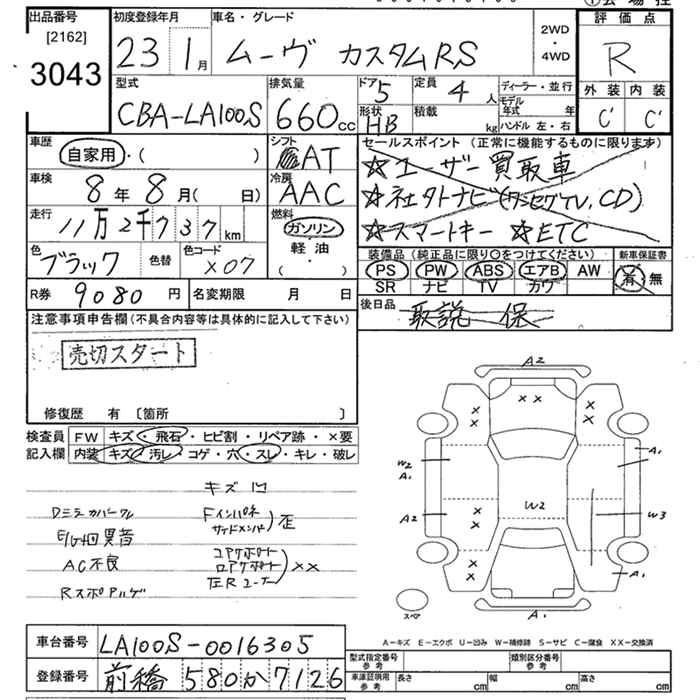 出品番号
[2162]
3043
初度登録年月
車名・グレード
評価点
23 1月
ムーヴ カスタムRS
2WD
・
4WD
R
型式
排気量
ドア 5
定員 4人
ディーラー・並行
外装 内装
CBA-LA100S
660cc
形状 HB
積載 kg
モデル年式 年
ハンドル 左・右
C' C'
車歴
自家用・( )
シフト
AT
セールスポイント (正常に機能するものに限ります)
☆ユーザー買取車
車検
8年8月( 日)
冷房
AAC
☆社外ナビ(ワンセグTV,CD)
走行
11万2千737km
燃料
ガソリン
・
軽油
・
( )
☆スマートキー ☆ETC
色
ブラック
色替
色コード
X07
装備品 (純正品に限り○をつけてください)
新車保証書
PS PW ABS エアB AW
SR ナビ TV カワ
有・無
R券 9080円
名変期限 月 日
後日品
取説 保
注意事項申告欄(不具合内容等は具体的に記入して下さい)
売切スタート
修復歴 有 〔箇所 〕
検査員
記入欄
FW キズ・飛石・ヒビ割・リペア跡・×要
内装 キズ・汚レ・コゲ・穴・スレ・キレ・破レ
キズ 凹
Dミラーカバーワレ
E/G回異音
AC不良
Fインパネ
サイドメンバ
歪
コアサポート
ロアサポート
××
A2
W2
A1
A2
A1
W2
W3
A1
A1
スペア
A-キズ E-エクボ U-凹み W-補修跡 S-サビ C-腐食 XX-交換済
車台番号 LA100S-0016305
登録番号 前橋580か7126
型式指定番号
参考
類別区分番号
参考
車庫証明用
参考
長さ cm
幅 cm
高さ cm